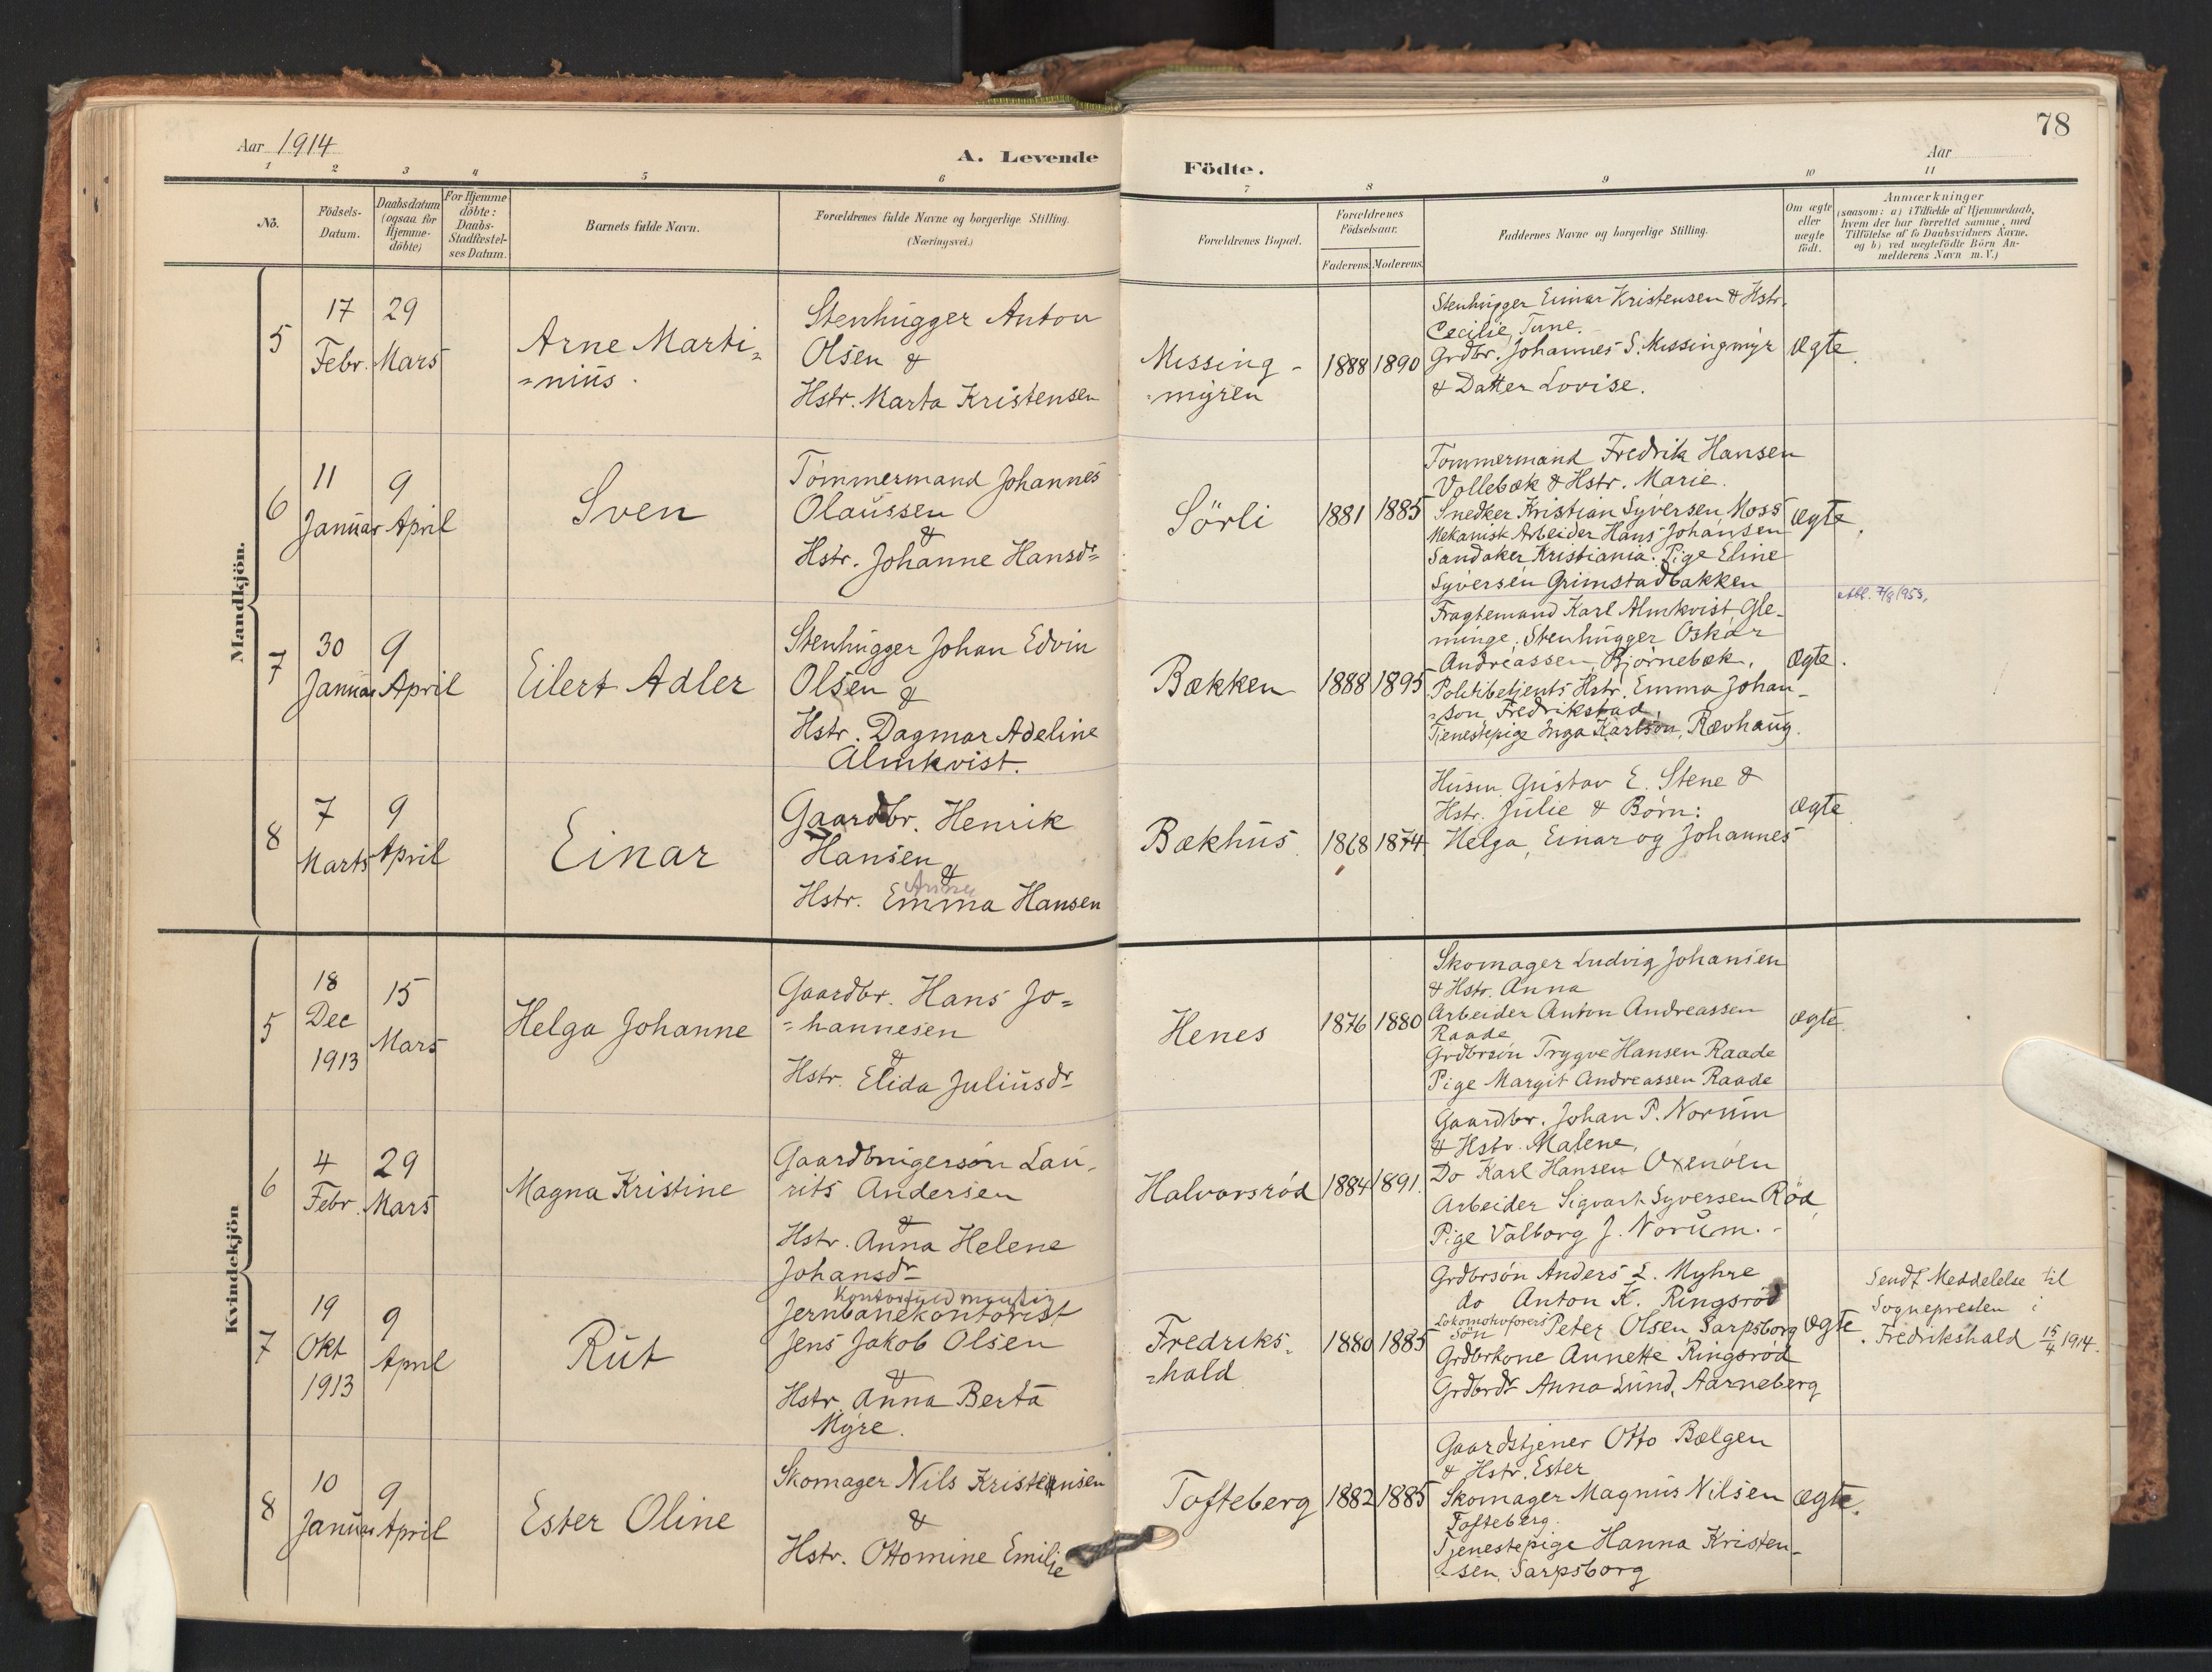 78
Aar 1914
A. Levende Födte.
Aar
1 2 3 4 5 6 7 8 9 10 11
No.
Födsels-
Datum.
Daabsdatum
(ogsaa for
Hjemme-
döbte)
For Hjemme
döbte:
Daabs-
Stadfæstel-
ses Datum.
Barnets fulde Navn.
Forældrenes fulde Navne og borgerlige Stilling.
(Næringsvei.)
Forældrenes Bopæl.
Forældrenes
Födselsaar.
Faderens. Moderens.
Faddernes Navne og borgerlige Stilling.
Om ægte
eller
uægte
födt.
Anmærkninger
(saasom: a) i Tilfælde af Hjemmedaab,
hvem der har forrettet samme, med
Tilföielse af to Daabsvidners Navne,
og b) ved uægtefödte Börn An-
melderens Navn m.V.)
Mandkjön.
5
17
Febr.
29
Mars
Arne Marti=
=nius.
Stenhugger Anton
Olsen &
Hstr. Marta Kristensen
Missing-
=myren
1888 1890
Stenhugger Einar Kristensen & Hstr.
Cecilie, Tune.
Grdbr. Johannes S. Missingmyr
& Datter Lovise.
Ægte.
6
11
Januar
9
April
Sven
Tömmermand Johannes
Olaussen
&
Hstr. Johanne Hansdr
Sörli
1881 1885
Tömmermand Fredrik Hansen
Vollebæk & Hstr. Marie.
Snedker Kristian Syversen Moss
Mekanisk Arbeider Hans Johansen
Sandaker Kristiania. Pige Eline
Syversen Grimstadbakken
Ægte.
7
30
Januar
9
April
Eilert Adler
Stenhugger Johan Edvin
Olsen &
Hstr. Dagmar Adeline
Almkvist.
Bækken
1888 1895
Fragtemand Karl Almkvist Gle-
minge, Stenhugger Oskar
Andreassen, Björnebæk.
Politibetjents Hstr. Emma Johan-
=son, Fredrikstad,
Tjenestepige Inga Karlson, Rævhaug.
Ægte.
8
7
Marts
9
April
Einar
Gaardbr. Henrik
Hansen
&
Anne
Hstr. Emma Hansen
Bækhus.
1868 1874
Husm. Gustav E. Stene &
Hstr. Julie & Börn:
Helga, Einar og Johannes
Ægte.
Kvindekjön
5
18
Dec
1913
15
Mars
Helga Johanne
Gaardbr. Hans Jo=
=hannesen
&
Hstr. Elida Juliusdr
Henes
1876 1880
Skomager Ludvig Johansen
& Hstr. Anna
Arbeider Anton Andreassen
Raade
Grdbrsön Trygve Hansen Raade
Pige Margit Andreassen Raade
Ægte.
6
4
Febr.
29
Mars
Magna Kristine
Gaardbrugersön Lau-
rits Andersen
&
Hstr. Anna Helene
Johansdr
Halvorsröd
1884 1891.
Gaardbr. Johan P. Norum
& Hstr. Malene,
Do Karl Hansen Oxenöen
Arbeider Sigvart Syversen Röd,
Pige Valborg J. Norum.
7
19
Okt
1913
9
April
Rut
Kontorfuldmægtig
Jernbanekontorist
Jens Jakob Olsen
&
Hstr. Anna Berta
Myre.
Fredriks-
=hald
1880 1885
Grdbrsön Anders L. Myhre
do Anton K. Ringsröd
Lokomotivförers
Sön Peter Olsen, Sarpsborg
Grdbrkone Annette Ringsröd
Grdbrdr Anna Lund, Aarneberg
Ægte.
Sendt Meddelelse til
Sognepresten i
Fredrikshald 15/4 1914.
8
10
Januar
9
April
Ester Oline
Skomager Nils Kristensen
&
Hstr. Ottomine Emilie
Tofteberg
1882 1885
Gaardstjener Otto Bælgen
& Hstr. Ester
Skomager Magnus Nilsen
Tofteberg.
Tjenestepige Hanna Kristen-
=sen, Sarpsborg
Ægte.